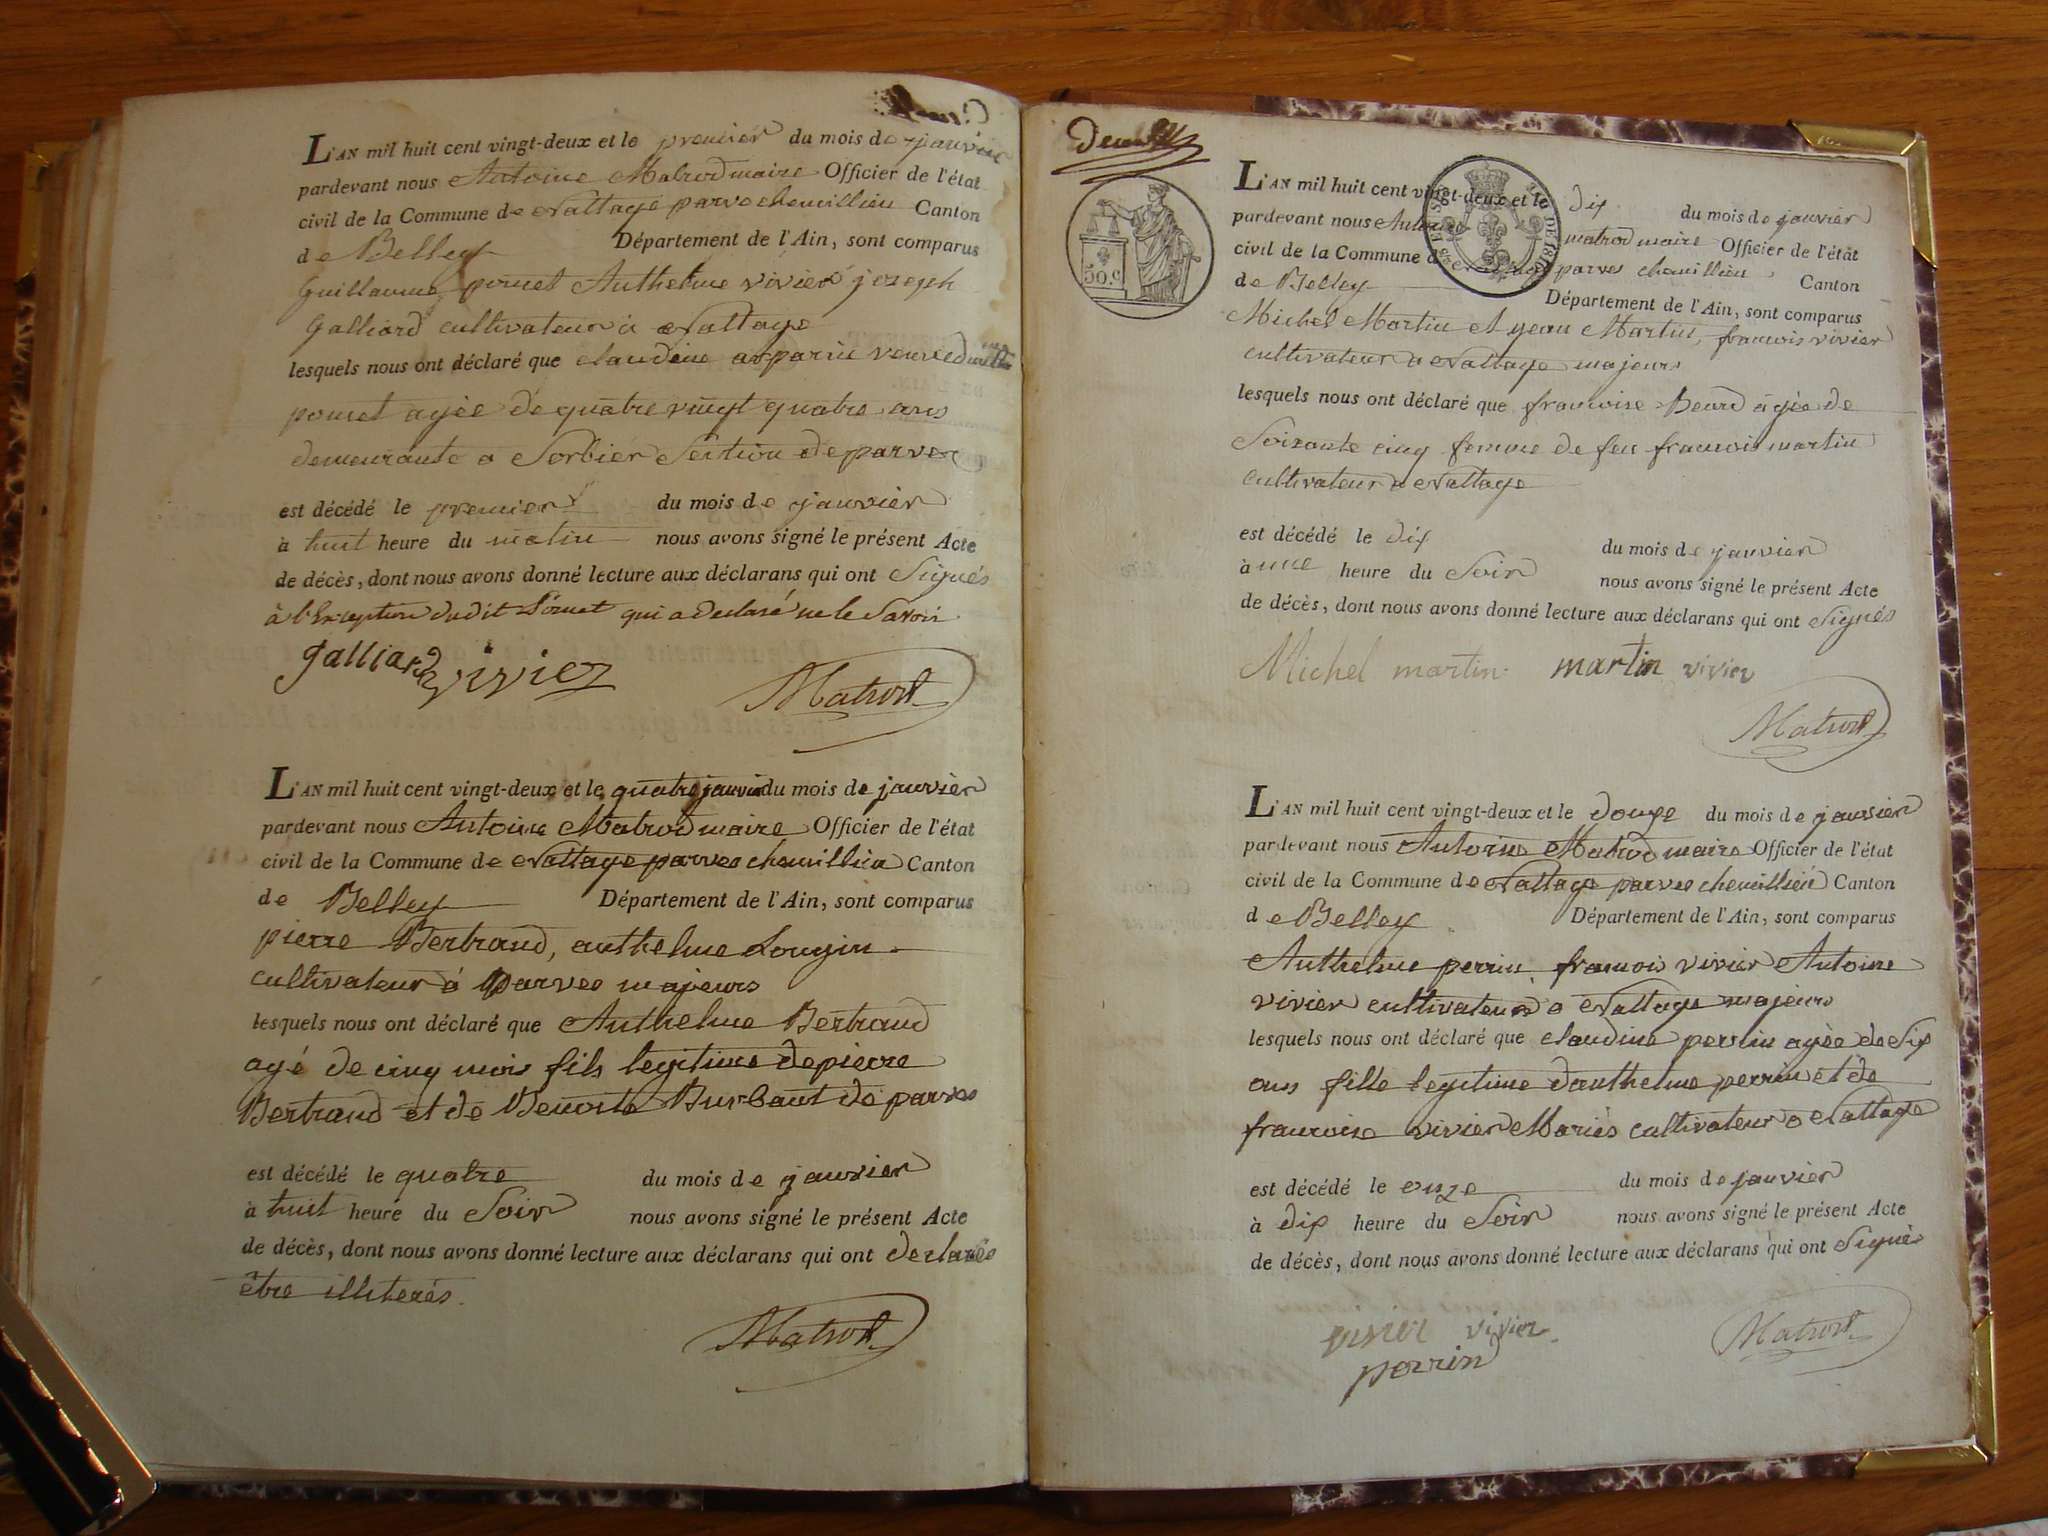 L'AN mil huit cent vingt-deux et le premier du mois de janvier
pardevant nous Antoine Matrod maire Officier de l'état
civil de la Commune de Nattage parves chemillieu Canton
de Belley Département de l'Ain, sont comparus
Guillaume pomet Anthelme vivier joseph
Galliard cultivateur à Nattage
lesquels nous ont déclaré que claudine veuve
pomet agée de quatre vingt quatre ans
demeurante a Sorbier Section de parves
est décédé le premier du mois de janvier
à huit heure du matin nous avons signé le présent Acte
de décès, dont nous avons donné lecture aux déclarans qui ont Signés
à l'Exception dudit Pomet qui a declaré ne le Savoir
galliard vivier
Matrod
L'AN mil huit cent vingt-deux et le quatre janvier du mois de janvier
pardevant nous Antoine Matrod maire Officier de l'état
civil de la Commune de Nattage parves chemillieu Canton
de Belley Département de l'Ain, sont comparus
pierre Bertrand, anthelme Lougin
cultivateur à parves majeurs
lesquels nous ont déclaré que Anthelme Bertrand
agé de cinq mois fils legitime de pierre
Bertrand et de Benoite Burbaut de parves
est décédé le quatre du mois de janvier
à huit heure du Soir nous avons signé le présent Acte
de décès, dont nous avons donné lecture aux déclarans qui ont declarés
être illiterés.
Matrod
deux
50.c
L'AN mil huit cent vingt-deux et le dix du mois de janvier
pardevant nous Antoine matrod maire Officier de l'état
civil de la Commune de parves chemillieu Canton
de Belley Département de l'Ain, sont comparus
Michel Martin et jean Martin, francois vivier
cultivateur a Nattage majeurs
lesquels nous ont déclaré que francoise Beard agée de
Soixante cinq femme de feu francois martin
cultivateur a Nattage
est décédé le dix du mois de janvier
à une heure du Soir nous avons signé le présent Acte
de décès, dont nous avons donné lecture aux déclarans qui ont Signés
Michel martin martin vivier
Matrod
L'AN mil huit cent vingt-deux et le douze du mois de janvier
pardevant nous Antoine Matrod maire Officier de l'état
civil de la Commune de Nattage parves chemillieu Canton
de Belley Département de l'Ain, sont comparus
Anthelme perrin francois vivier Antoine
vivier cultivateur a Nattage majeurs
lesquels nous ont déclaré que claudine perrin agée de Six
ans fille legitime d'anthelme perrin et de
francoise vivier Mariés cultivateur a Nattage
est décédé le onze du mois de janvier
à dix heure du Soir nous avons signé le présent Acte
de décès, dont nous avons donné lecture aux déclarans qui ont Signés
vivier vivier
perrin
Matrod